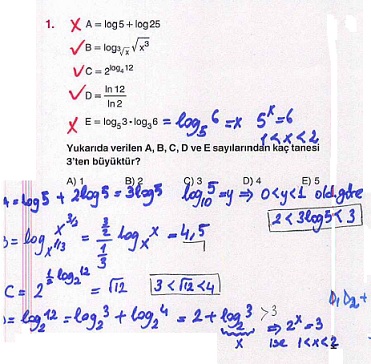 1. ✗ A = log5 + log25
✓ B = log∛x √x³
✓ C = 2^log₄12
✓ D = ln 12 / ln 2
✗ E = log₅3·log₃6 = log₅6 = x 5^x = 6
1 < x < 2
Yukarıda verilen A, B, C, D ve E sayılarından kaç tanesi
3'ten büyüktür?
A) 1 B) 2 C) 3 D) 4 E) 5
A = log5 + 2log5 = 3log5 log₁₀5 = y ⇒ 0<y<1 old. göre
2 < 3log5 < 3
B = log_x^1/3 x^3/2 = 3/2 / 1/3 log_x x = 4,5
C = 2^½ log₂12 = √12 3 < √12 < 4
D = log₂12 = log₂3 + log₂4 = 2 + log₂3 > 3 ⇒ 2^x = 3
x ise 1<x<2